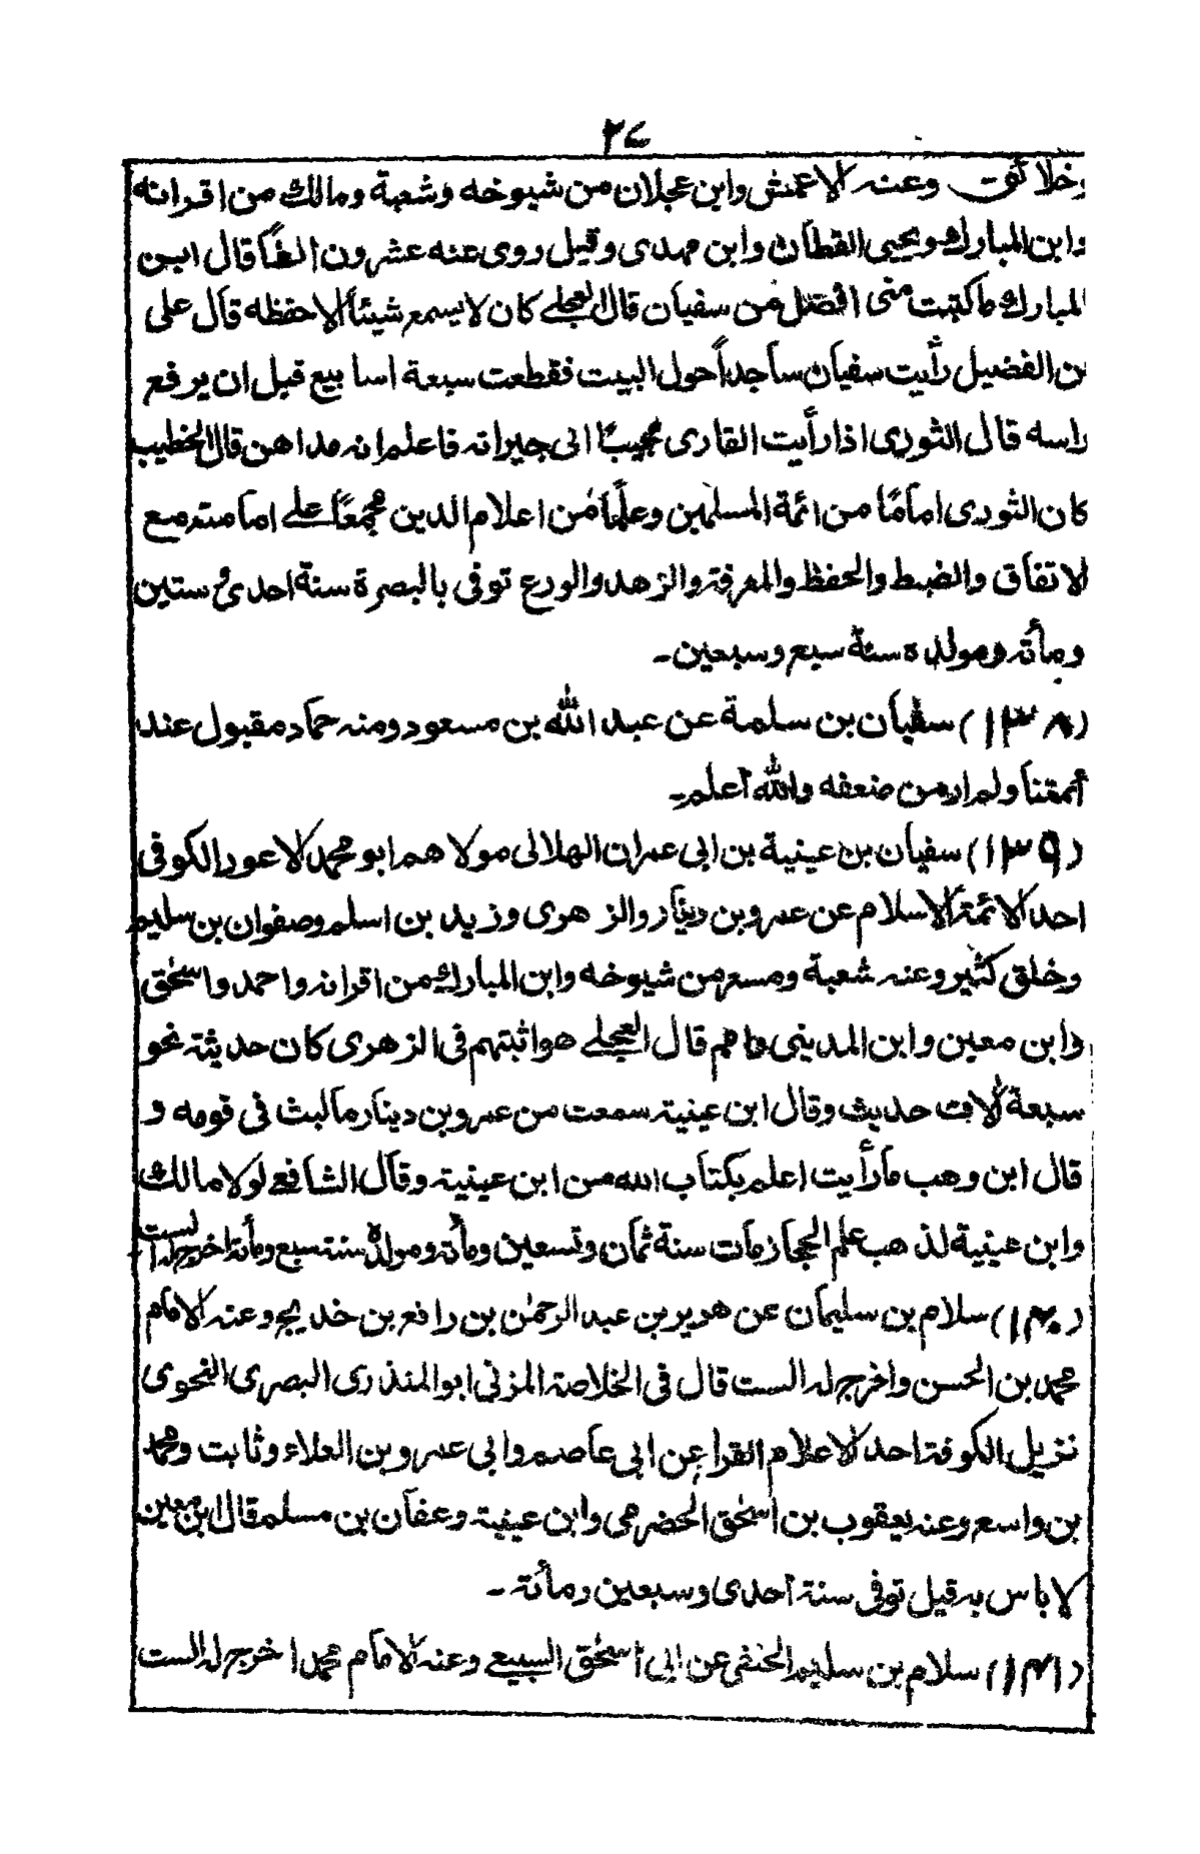 ٢٧
وخلائق وعنه الاعمش وابن عجلان من شيوخه وشعبة ومالك من اقرانه
وابن المبارك ويحيى القطان وابن مهدى وقيل روى عنه عشرون الفاً قال ابن
المبارك ما كتبت منى افضل من سفيان قال العجلے كان لا يسمع شيئاً الا حفظه قال على
بن الفضيل رأيت سفيان ساجداً حول البيت فقطعت سبعة اسابيع قبل ان يرفع
راسه قال الثورى اذا رأيت القارى محببًا الى جيرانه فاعلم انه مداهن قال الخطيب
كان الثورى امامًا من ائمة المسلمين وعلمًا من اعلام الدين مجمعًا علے امامته مع
الاتفاق والضبط والحفظ والمعرفة والزهد والورع توفى بالبصرة سنة احدى وستين
ومأته ومولده سنة سبع وسبعين۔
(١٣٨) سفيان بن سلمة عن عبد الله بن مسعود ومنه حماد مقبول عند
أئمتنا ولم ار من ضعفه والله أعلم۔
(١٣٩) سفيان بن عينية بن ابى عمران الهلالى مولاهم ابو محمد الاعور الكوفى
احد الائمة الاسلام عن عمرو بن دينار والزهرى وزيد بن اسلم وصفوان بن سليم
وخلق كثير وعنه شعبة ومسعر من شيوخه وابن المبارك من اقرانه واحمد واسحٰق
وابن معين وابن المدينى وامم قال العجلے هو اثبتهم فى الزهرى كان حديثه نحو
سبعة آلاف حديث وقال ابن عينية سمعت من عمرو بن دينار ما لبث فى قومه و
قال ابن وهب ما رأيت اعلم بكتاب الله من ابن عينية وقال الشافعے لولا مالك
وابن عينية لذهب علم الحجاز مات سنة ثمان وتسعين ومأته ومولده سنة سبع ومأته اخرج له الست
(١٤٠) سلام بن سليمان عن هرير بن عبد الرحمٰن بن رافع بن خديج وعنه الامام
محمد بن الحسن واخرج له الست قال فى الخلاصة المزنى ابو المنذرى البصرى النحوى
نزيل الكوفة احد الاعلام القرا عن ابى عاصم وابى عمرو بن العلاء وثابت ومحمد
بن واسع وعنه يعقوب بن اسحٰق الحضرمى وابن عينية وعفان بن مسلم قال ابن معين
لا باس به قيل توفى سنة أحدى وسبعين ومأتة۔
(١٤١) سلام بن سليم الحنفى عن ابى أسحٰق السبيعے وعنه الامام محمد اخرج له الست